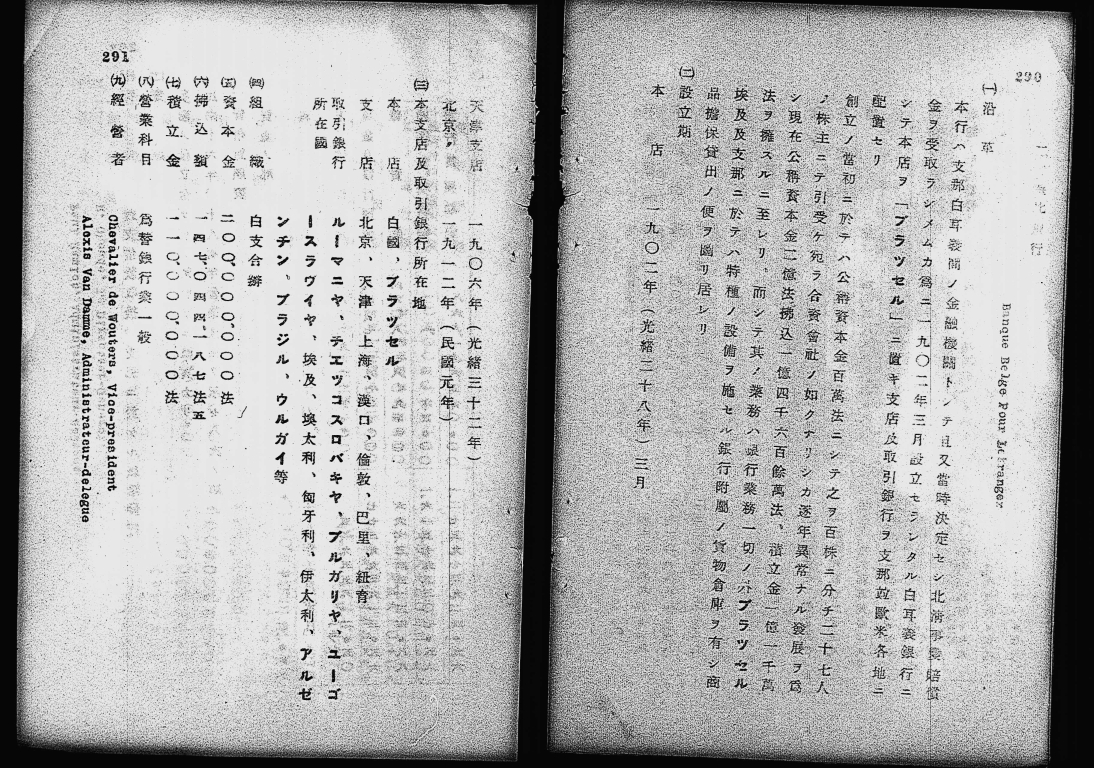 290
二、華比銀行
Banque Belge Pour L'etranger
(一)沿革
本行ハ支那白耳義間ノ金融機關トシテ且又當時決定セシ北淸事變賠償
金ヲ受取ラシメムカ爲ニ一九〇二年三月設立セラレタル白耳義銀行ニ
シテ本店ヲ「ブラツセル」ニ置キ支店及取引銀行ヲ支那竝歐米各地ニ
配置セリ
創立ノ當初ニ於テハ公稱資本金百萬法ニシテ之ヲ百株ニ分チ二十七人
ノ株主ニテ引受ケ宛ラ合資會社ノ如クナリシカ逐年異常ナル發展ヲ爲
シ現在公稱資本金二億法拂込一億四千六百餘萬法、積立金一億一千萬
法ヲ擁スルニ至レリ、而シテ其ノ業務ハ銀行業務一切ノ外ブラツセル
埃及及支那ニ於テハ特種ノ設備ヲ施セル銀行附屬ノ貨物倉庫ヲ有シ商
品擔保貸出ノ便ヲ圖リ居レリ
(二)設立期
本店 一九〇二年(光緒二十八年)三月
291
天津支店 一九〇六年(光緒三十二年)
北京〃 一九一二年(民國元年)
(三)本支店及取引銀行所在地
本店 白國、ブラツセル
支店 北京、天津、上海、漢口、倫敦、巴里、紐育
取引銀行所在國 ルーマニヤ、チエツコスロバキヤ、ブルガリヤ、ユーゴ
ースラヴイヤ、埃及、墺太利、匈牙利、伊太利、アルゼ
ンチン、ブラジル、ウルガイ等
(四)組織 白支合辦
(五)資本金 二〇〇、〇〇〇、〇〇〇法
(六)拂込額 一四七、〇四四、一八七法五
(七)積立金 一一〇、〇〇〇、〇〇〇法
(八)營業科目 爲替銀行業一般
(九)經營者 Chevalier de Wouters, Vice-president
Alexis Van Damme, Administrateur-delegue